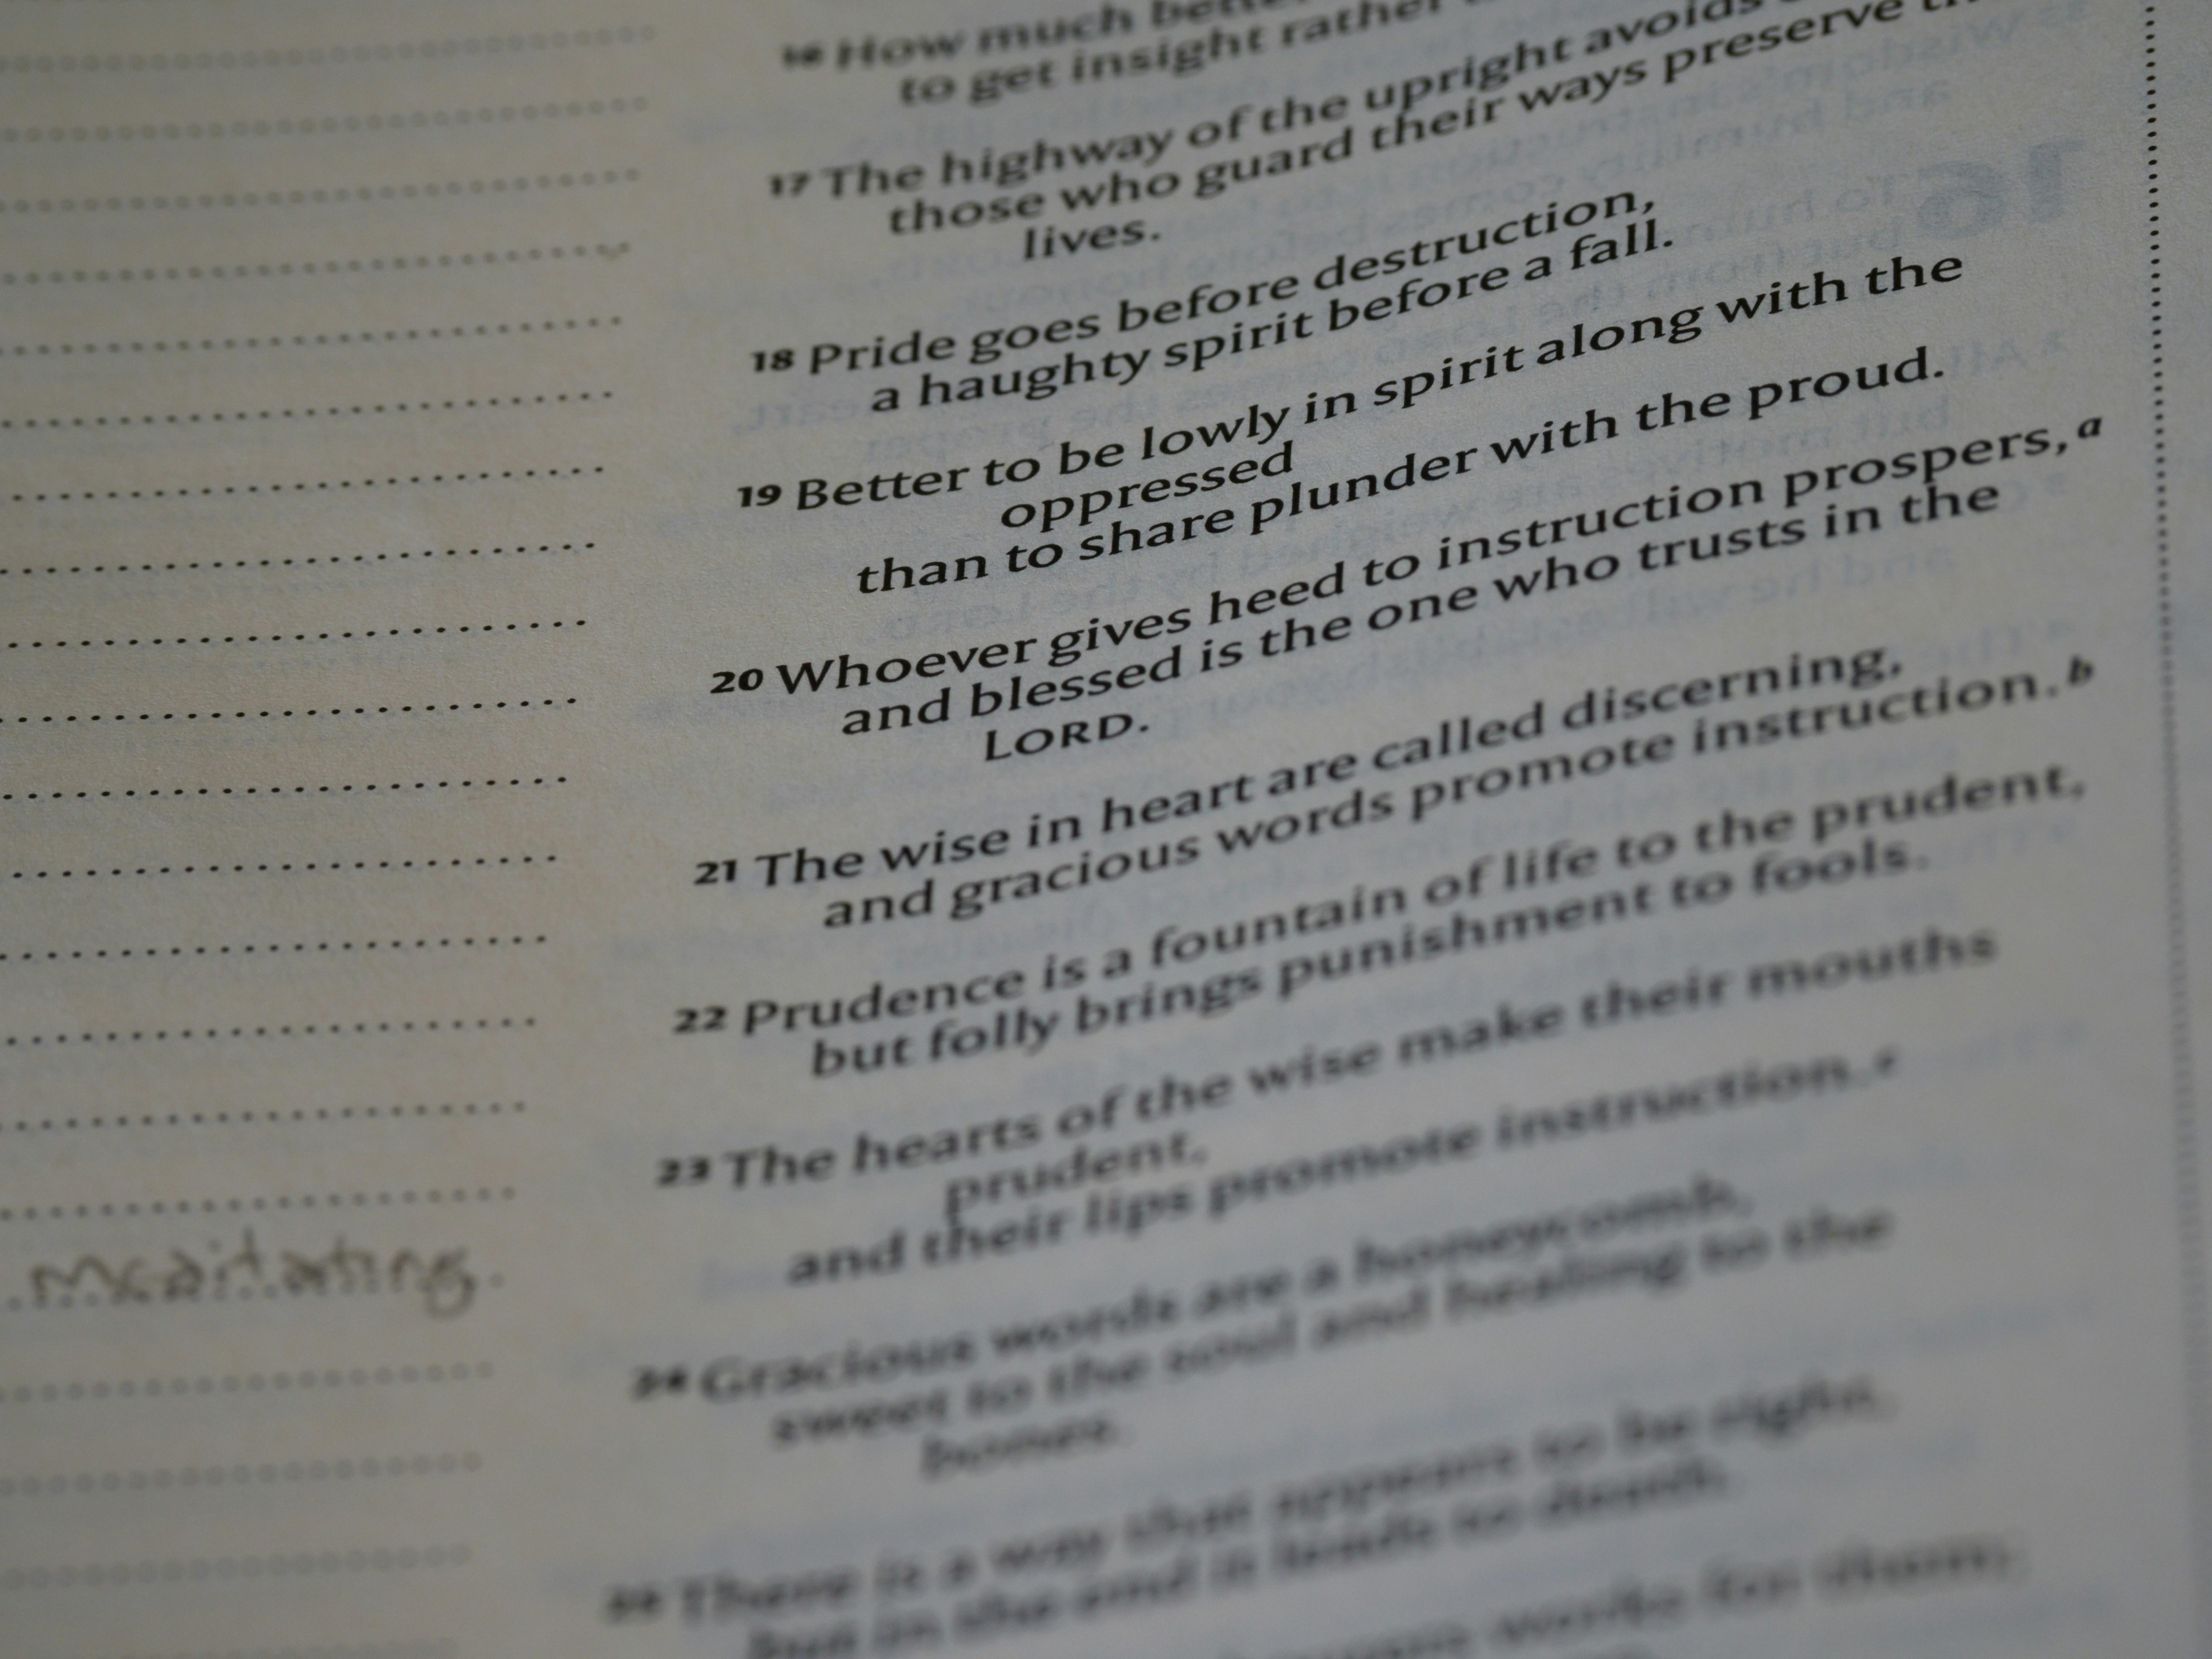 16 How much
to get insight rather
17 The highway of the upright avoids
those who guard their ways preserve
lives.
18 Pride goes before destruction,
a haughty spirit before a fall.
19 Better to be lowly in spirit along with the
oppressed
than to share plunder with the proud.
20 Whoever gives heed to instruction prospers, a
and blessed is the one who trusts in the
LORD.
21 The wise in heart are called discerning,
and gracious words promote instruction. b
22 Prudence is a fountain of life to the prudent,
but folly brings punishment to fools.
23 The hearts of the wise make their mouths
prudent,
and their lips promote instruction. c
meditating.
24 Gracious words are a honeycomb,
sweet to the soul and healing to the
bones.
25 There is a way that appears to be right,
but in the end it leads to death.
works for them;
16